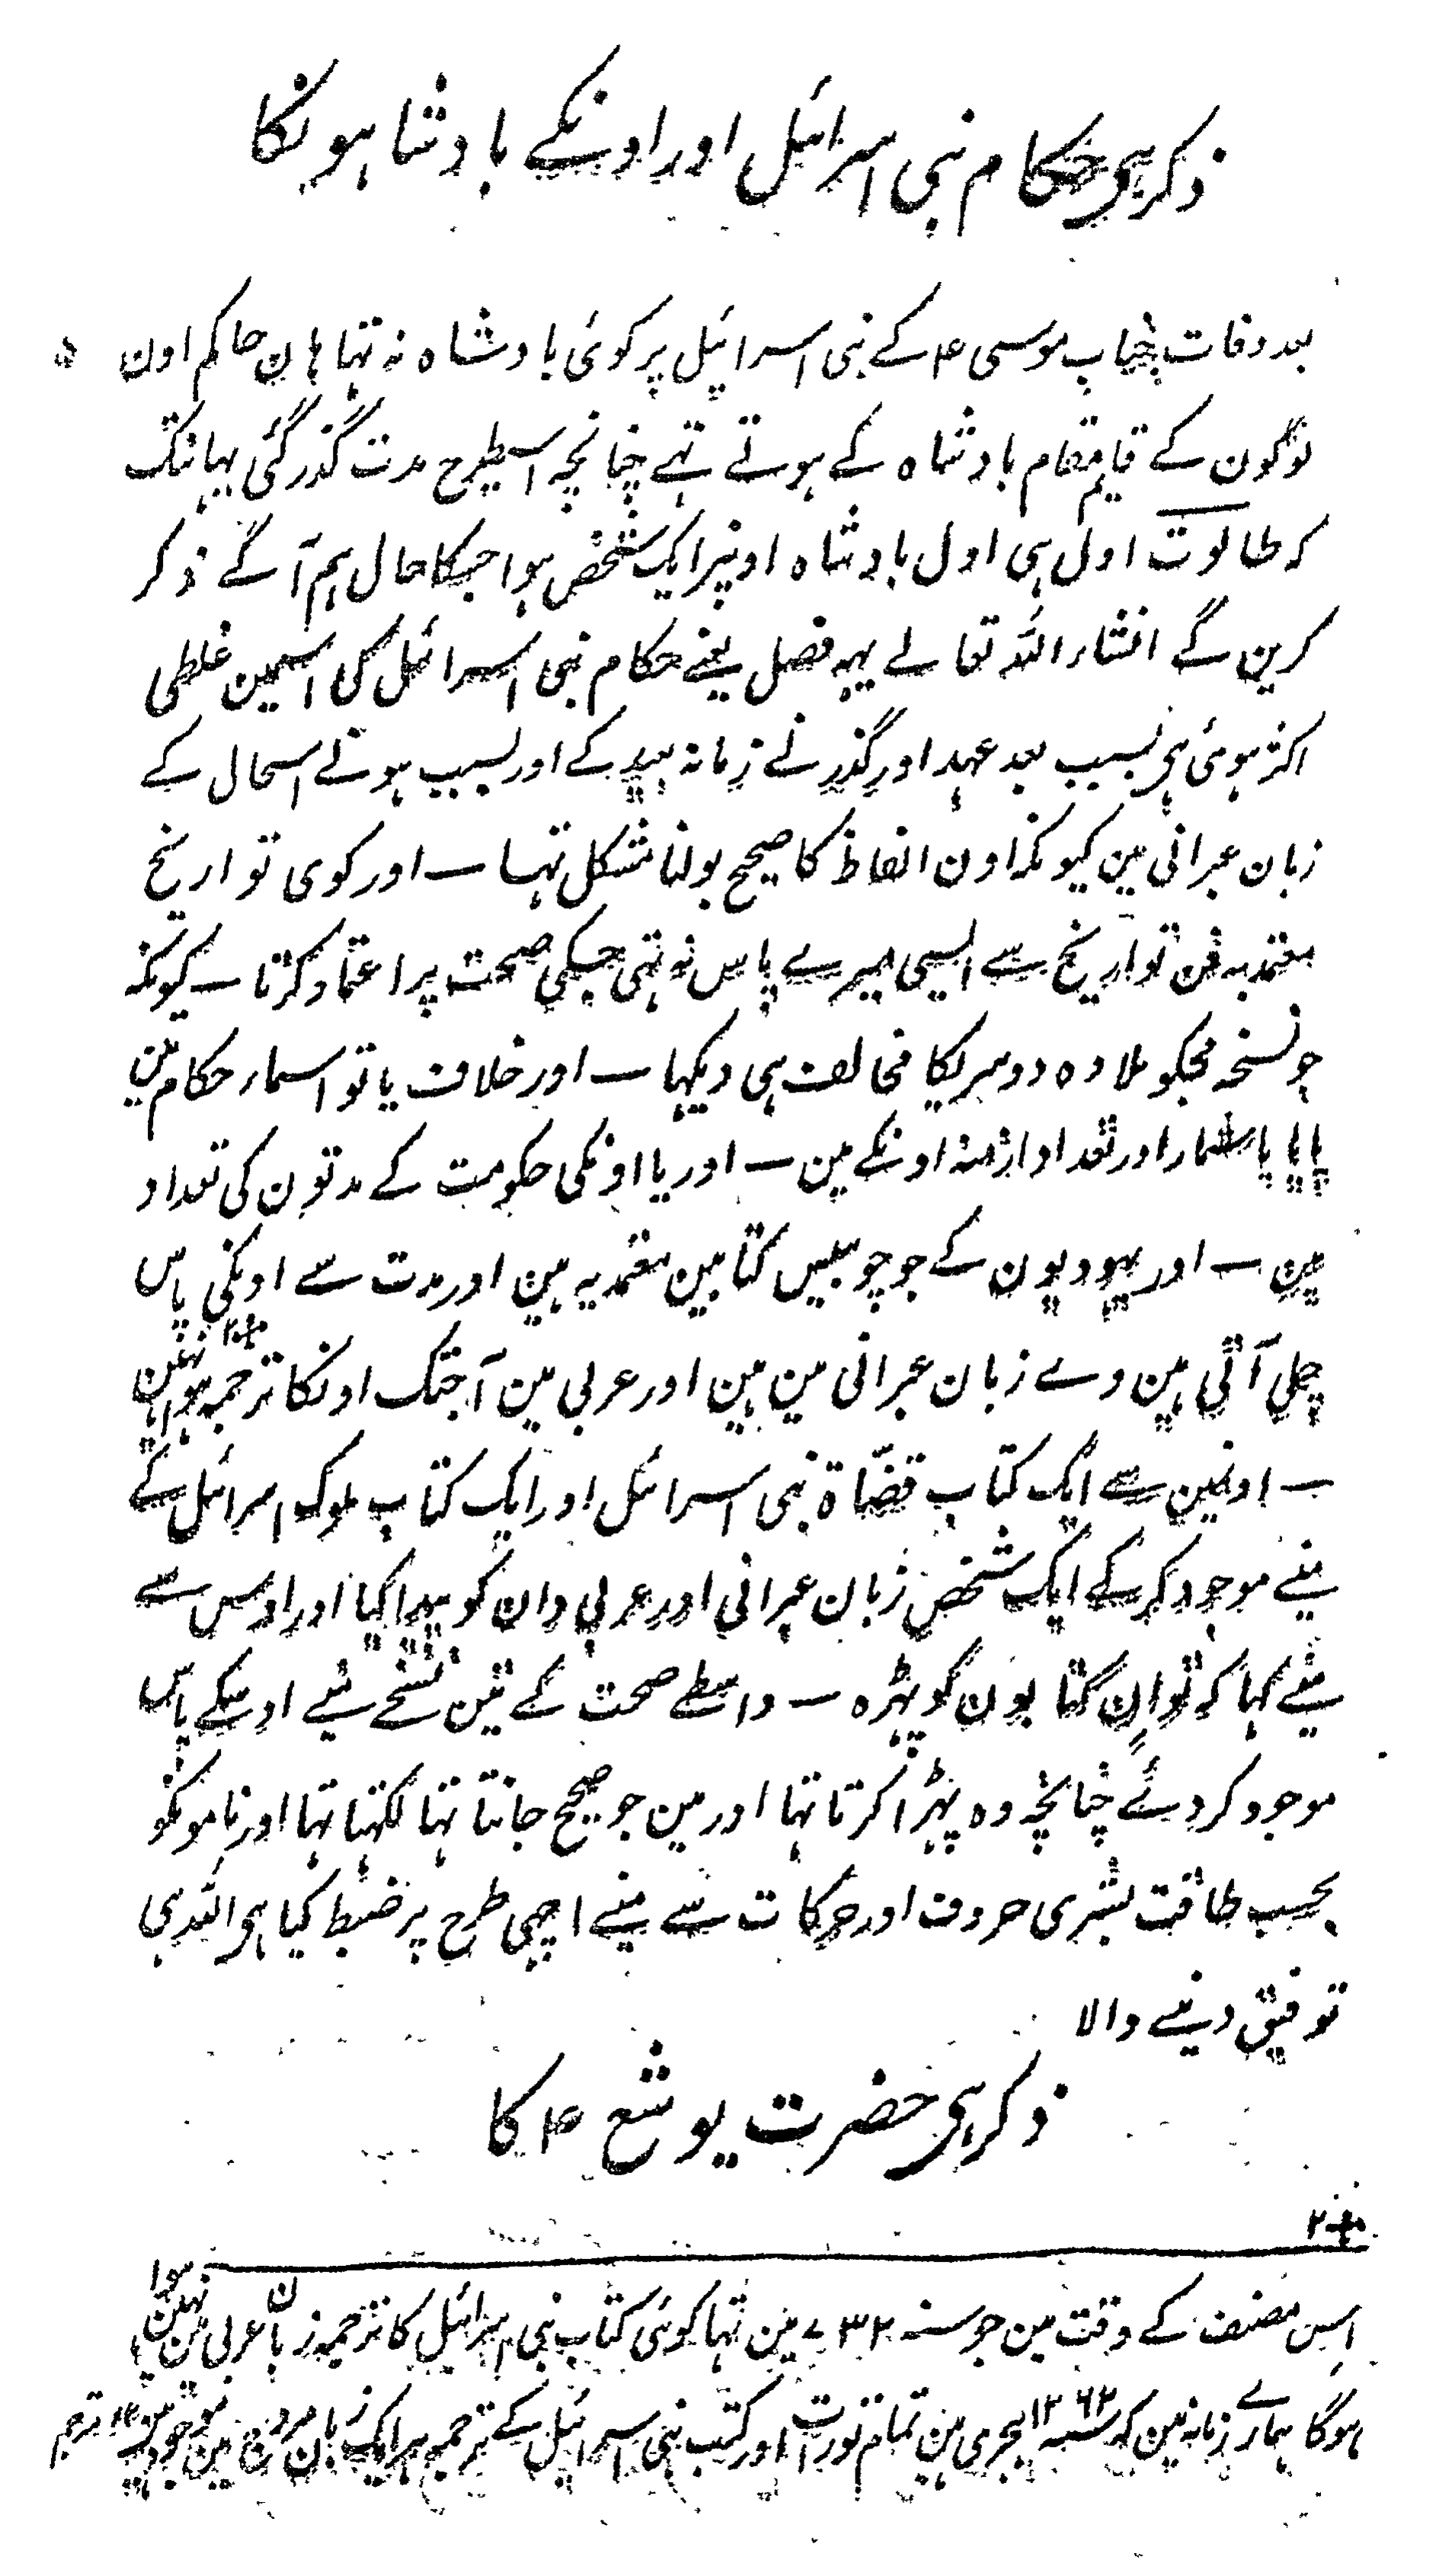 ذکر ہی حکام بنی اسرائیل اور اونکے بادشاہونکا
بعد وفات جناب موسی ۴ کے بنی اسرائیل پر کوئی بادشاہ نہ تہا ہان حاکم اون
لوگون کے قایم مقام بادشاہ کے ہوتے تہے چنانچہ اسیطرح مدت گذر گئی یہانتک
کہ طالوت اول ہی اول بادشاہ اونپر ایک شخص ہوا جسکا حال ہم آگے ذکر
کرین گے انشاء اللہ تعالے یہہ فصل یعنے حکام بنی اسرائیل کی اسمین غلطی
اکثر ہوئی ہی بسبب بعد عہد اور گذرنے زمانہ بعید کے اور بسبب ہونے اسحال کے
زبان عبرانی مین کیونکہ اون الفاظ کا صحیح بولنا مشکل تہا ــ اور کوی تواریخ
معتمد بہ فن تواریخ سے ایسی میرے پاس نہ تہی جسکی صحت پر اعتماد کرتا ــ کیونکہ
جو نسخہ مجکو ملا وہ دوسریکا مخالف ہی دیکہا ــ اور خلاف یا تو اسماء حکام مین
پایا یا شمار اور تعداد ازمنہ اونکے مین ــ اور یا اونکی حکومت کے مدتون کی تعداد
مین ــ اور یہودیون کے جو چوبیس کتابین معتمد بہ ہین اور مدت سے اونکی پاس
چلی آتی ہین وے زبان عبرانی مین ہین اور عربی مین آجتک اونکا ترجمہ نہین ہوا ۲
ــ اونمین سے ایک کتاب قضاة بنی اسرائیل اور ایک کتاب ملوک اسرائیل کے
مینے موجود کر کے ایک شخص زبان عبرانی اور عربی دان کو پیدا کیا اور اوس سے
مینے کہا کہ تو ان کتابون کو پہڑہ ــ واسطے صحت کے تین نسخے مینے اوسکے پاس
موجود کر دئے چنانچہ وہ پہڑا کرتا تہا اور مین جو صحیح جانتا تہا لکہتا تہا اور نامونکو
بحسب طاقت بشری حروف اور حرکات سے مینے اچہی طرح پر ضبط کیا ہی اللہ ہی
توفیق دینے والا
ذکر ہی حضرت یوشع ۴ کا
۲
اس مصنف کے وقت مین جو سنہ ۷۳۲ مین تہا کوئی کتاب بنی اسرائیل کا ترجمہ زبان عربی مین نہین ہوا
ہوگا ہمارے زمانہ مین کہ سنہ ۱۲۶۲ ہجری ہین تمام تورات اور کتب بنی اسرائیل کے ترجمہ ہر ایک زبان مروج مین موجود ہین ۱۲ مترجم